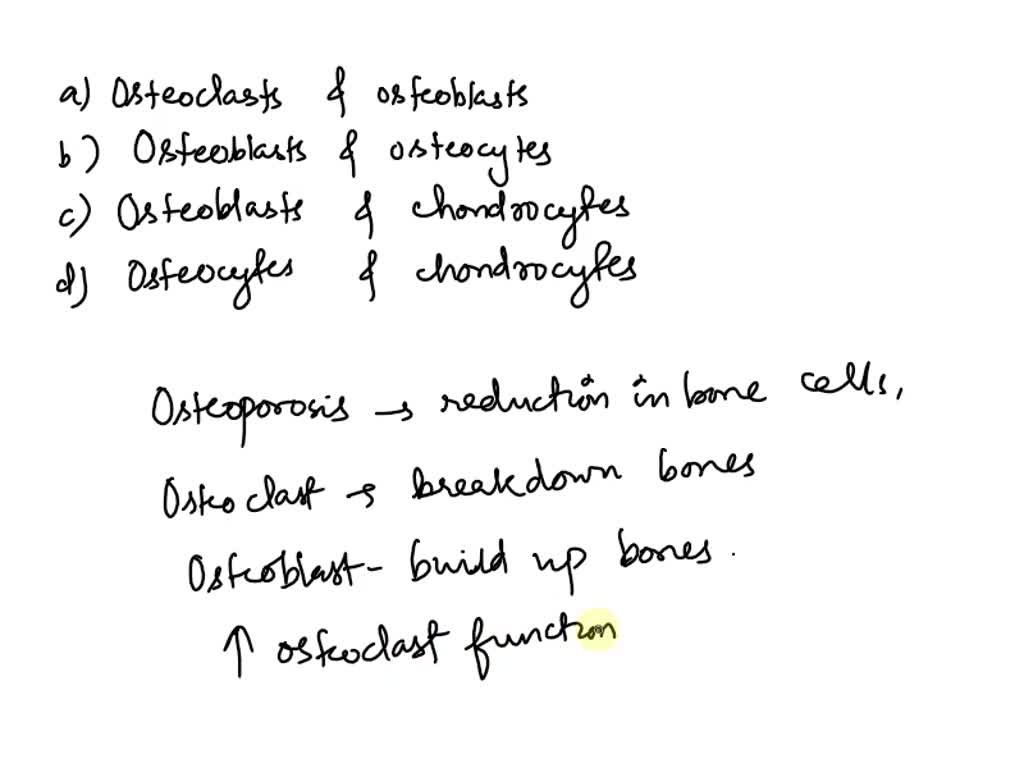 a) Osteoclasts & osteoblasts
b) Osteoblasts & osteocytes
c) Osteoblasts & chondrocytes
d) Osteocytes & chondrocytes
Osteoporosis → reduction in bone cells,
Osteoclast → breakdown bones
Osteoblast - build up bones.
↑ osteoclast function